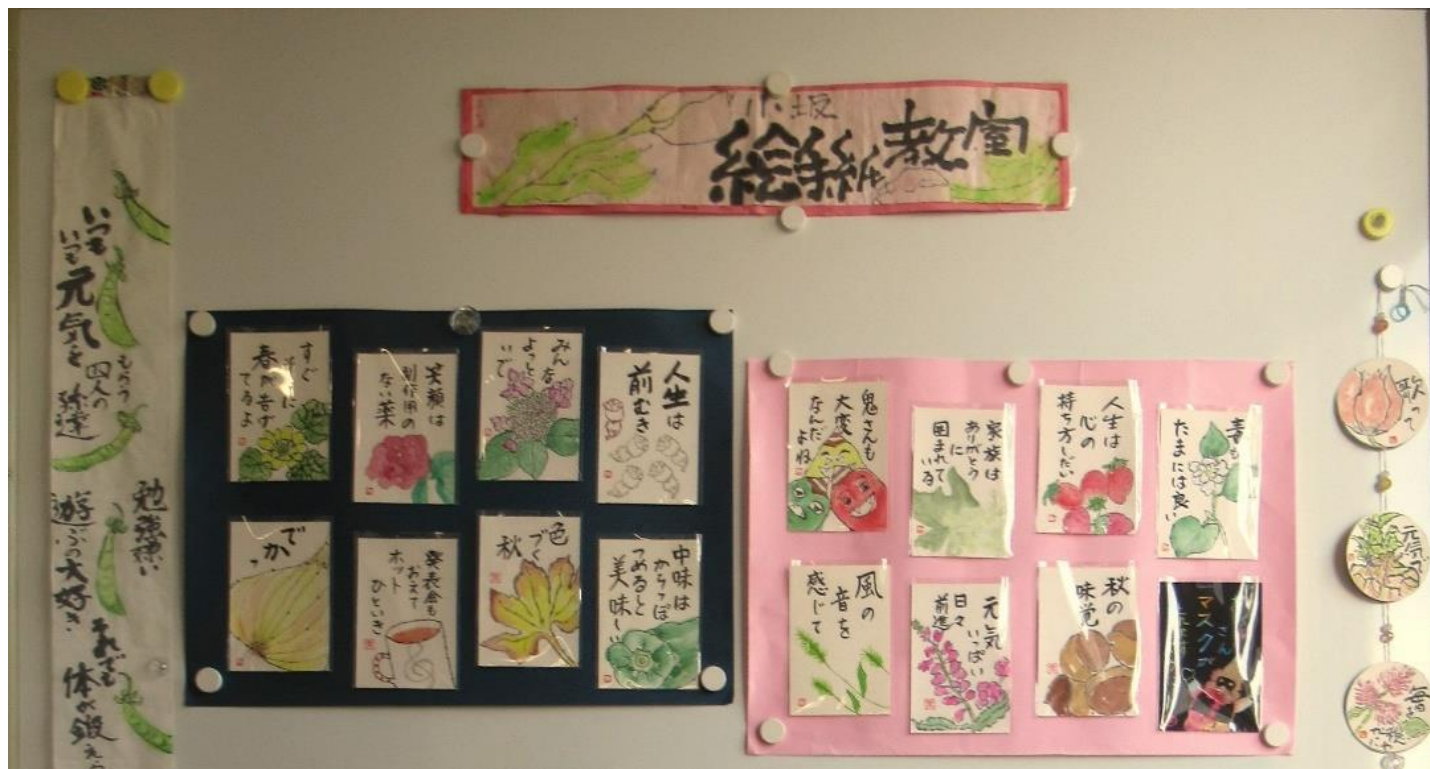 絵手紙教室
いつも
いつも
元気を
もらう
四人の
孫達
勉強嫌い
遊ぶの大好き
それでも
体が鍛えら
すぐ
そこに
春が告げ
てるよ
笑顔は
副作用の
ない薬
みんな
よっと
いで
人生は
前むき
でかっ
発表会も
おえて
ホット
ひといき
色づく
秋
中味は
からっぽ
つめると
美味〜い
鬼さんも
大変
なんだ
よね
家族は
ありがとう
に
囲まれて
いる
人生は
心の
持ち方しだい
たまには良い
風の
音を
感じて
元気
いっぱい
日々
前進
秋の
味覚
さん
マスクが
歌って
元気